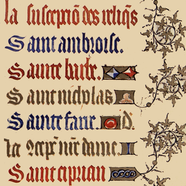 la susceptiõ des reliq̃s
Saint ambroise.
Sainte barbe.
Saint nicholas
Sainte fare d.
la 9cep̃. nr̃e dame.
Saint ciprian